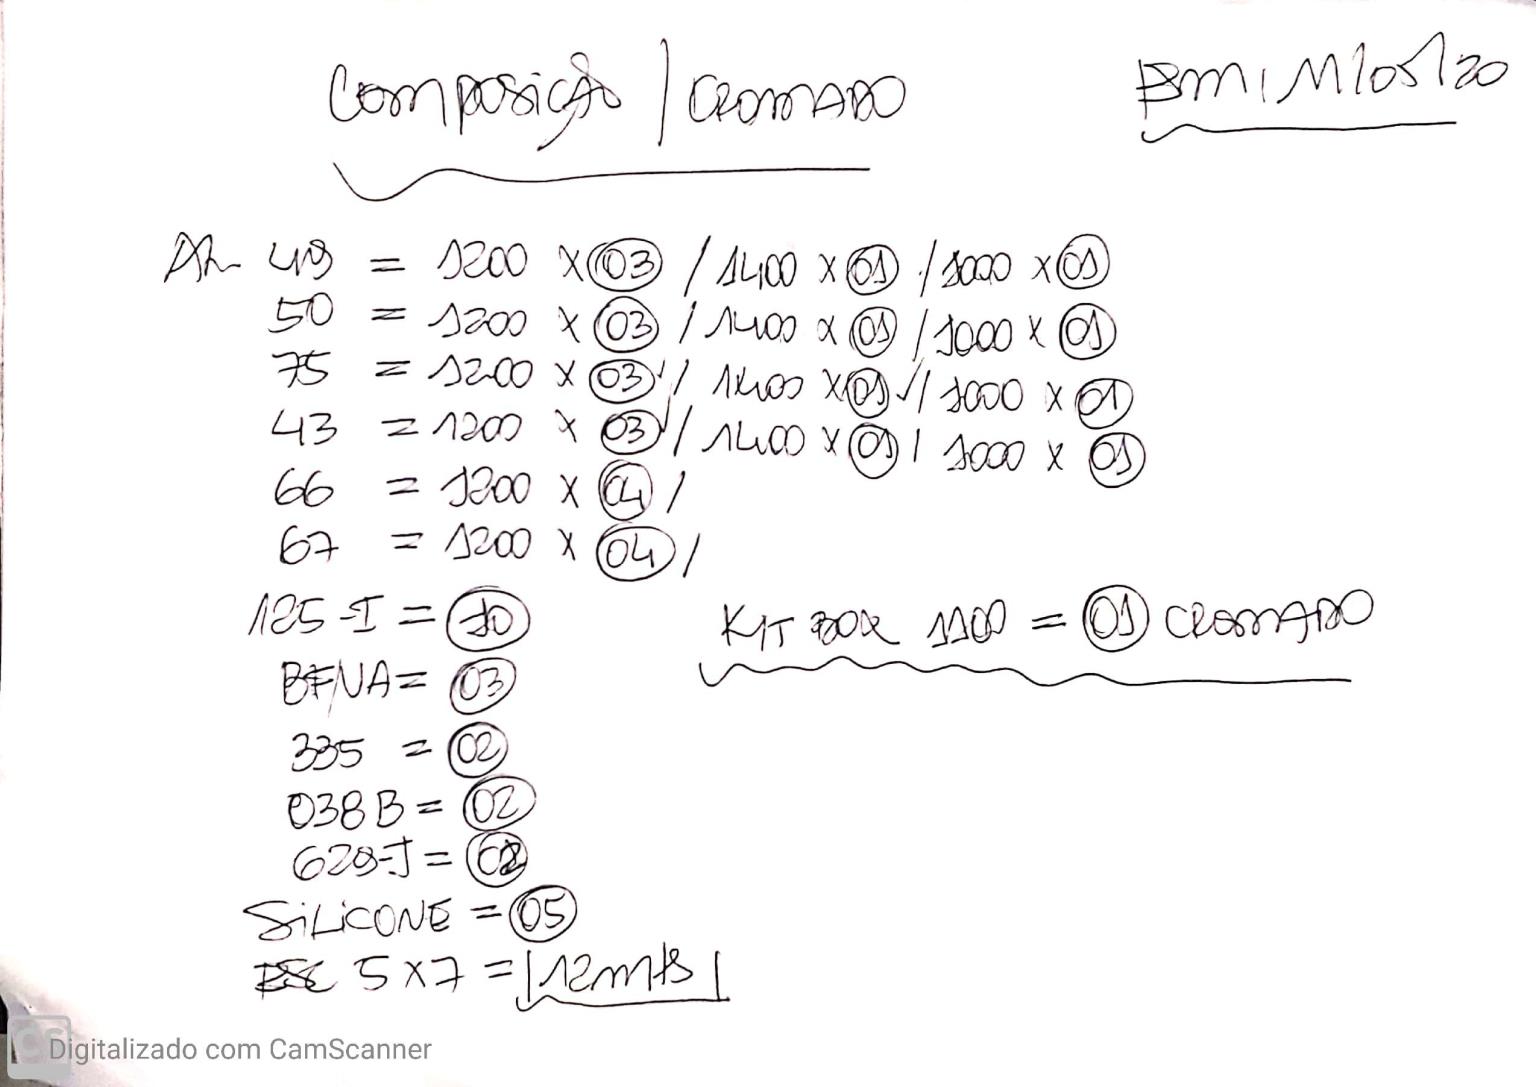 Composição / CROMADO
BM, 11/05/20
AL 49 = 1200 x 03 / 1400 x 01 / 1000 x 01
50 = 1200 x 03 / 1400 x 01 / 1000 x 01
75 = 1200 x 03 / 1400 x 01 / 1000 x 01
43 = 1200 x 03 / 1400 x 01 / 1000 x 01
66 = 1200 x 04 /
67 = 1200 x 04 /
125-I = 10
BFNA = 03
KIT BOX 1100 = 01 CROMADO
335 = 02
038 B = 02
629-J =
SILICONE = 05
5 x 7 = 12 mts
Digitalizado com CamScanner